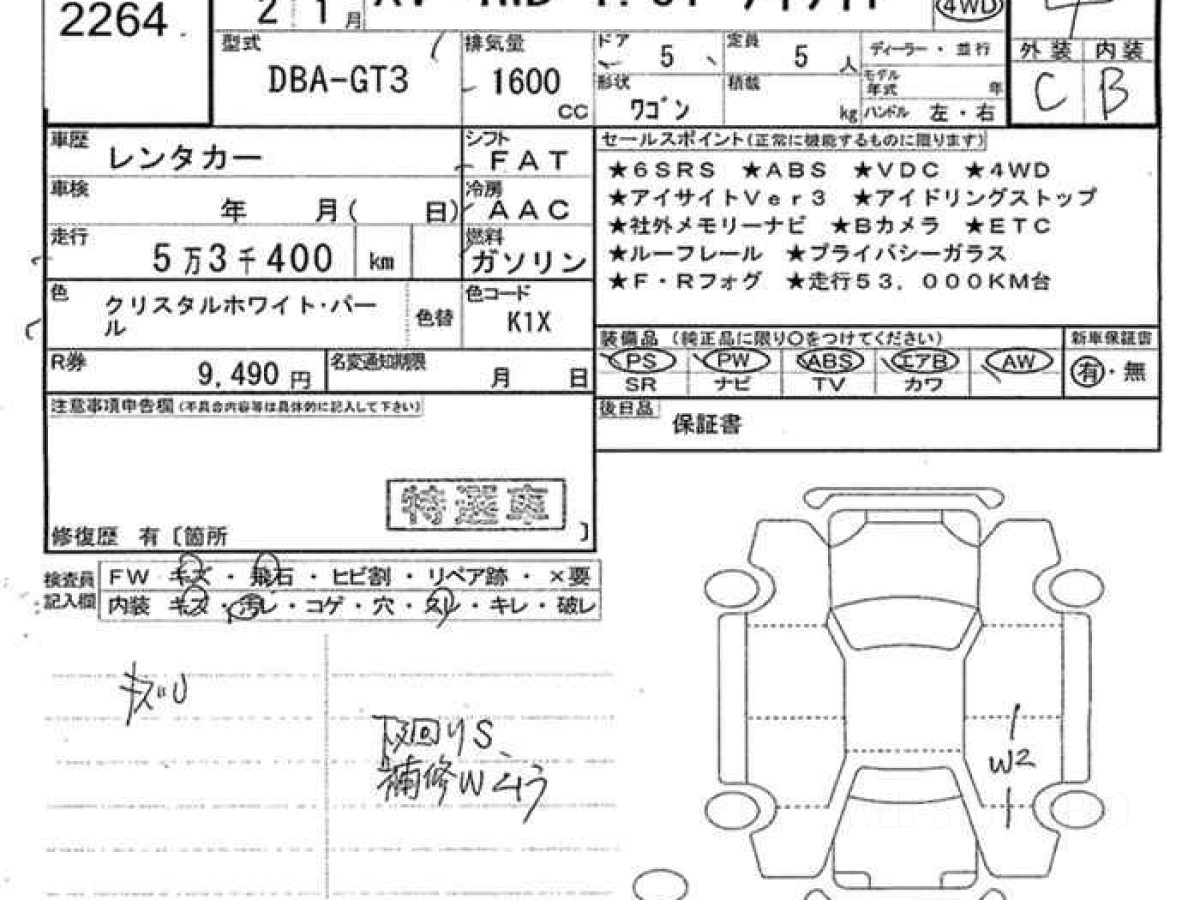 2264
2 1 月
4WD
型式
DBA-GT3
排気量
1600
CC
ドア 5
定員 5 人
形状 ワゴン
積載 kg
ディーラー・並行
モデル年式 年
ハンドル 左・右
外装 内装
C B
車歴 レンタカー
シフト FAT
車検 年 月( 日)
冷房 AAC
走行 5万3千400 km
燃料 ガソリン
色 クリスタルホワイト・パール
色替
色コード K1X
R券 9,490 円
名変通知期限 月 日
セールスポイント(正常に機能するものに限ります)
★6SRS ★ABS ★VDC ★4WD
★アイサイトVer3 ★アイドリングストップ
★社外メモリーナビ ★Bカメラ ★ETC
★ルーフレール ★プライバシーガラス
★F・Rフォグ ★走行53,000KM台
装備品 (純正品に限り○をつけてください)
PS PW ABS エアB AW
SR ナビ TV カワ
新車保証書
有・無
後日品
保証書
注意事項申告欄(不具合内容等は具体的に記入して下さい)
特選車
修復歴 有〔箇所 〕
検査員記入欄
FW キズ・飛石・ヒビ割・リペア跡・×要
内装 キズ・汚レ・コゲ・穴・スレ・キレ・破レ
キズU
下回りS、
補修Wムラ
W2